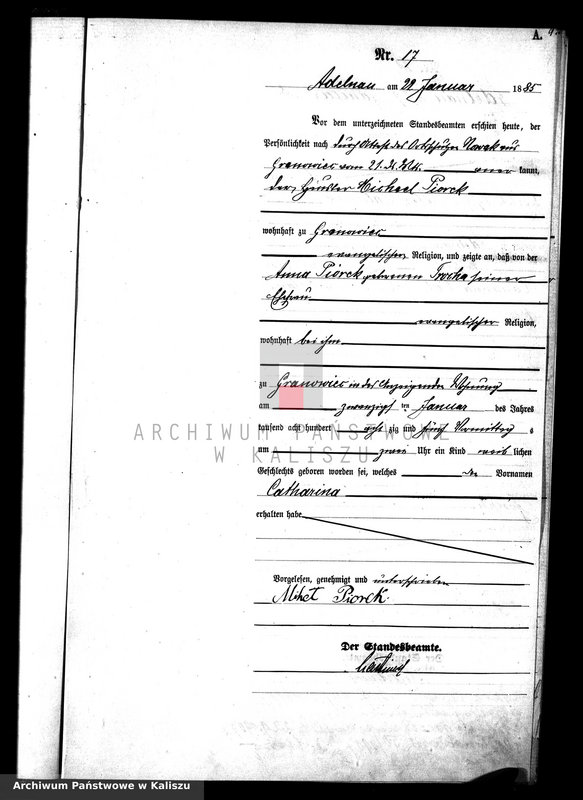 A.
Nr. 17
Adelnau am 22 Januar 1885
Vor dem unterzeichneten Standesbeamten erschien heute, der
Persönlichkeit nach durch Attest des Ortsschulzen Nowak aus
Granowiec vom 21. d. Mts. aner kannt,
der Häusler Michael Piorek
wohnhaft zu Granowiec
evangelischer Religion, und zeigte an, daß von der
Anna Piorek geborenen Trocha seiner
Ehefrau
evangelischer Religion,
wohnhaft bei ihm
zu Granowiec in des Anzeigenden Wohnung
am zwanzigsten Januar des Jahres
tausend acht hundert acht zig und fünf Vormittags
um zwei Uhr ein Kind weib lichen
Geschlechts geboren worden sei, welches den Vornamen
Catharina
erhalten habe
Vorgelesen, genehmigt und unterschrieben
Mihet Piorek
Der Standesbeamte.
ARCHIWUM PAŃSTWOWE
W KALISZU
Archiwum Państwowe w Kaliszu